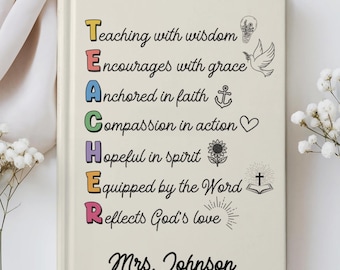 Teaching with wisdom
Encourages with grace
Anchored in faith
Compassion in action
Hopeful in spirit
Equipped by the Word
Reflects God's love
Mrs. Johnson